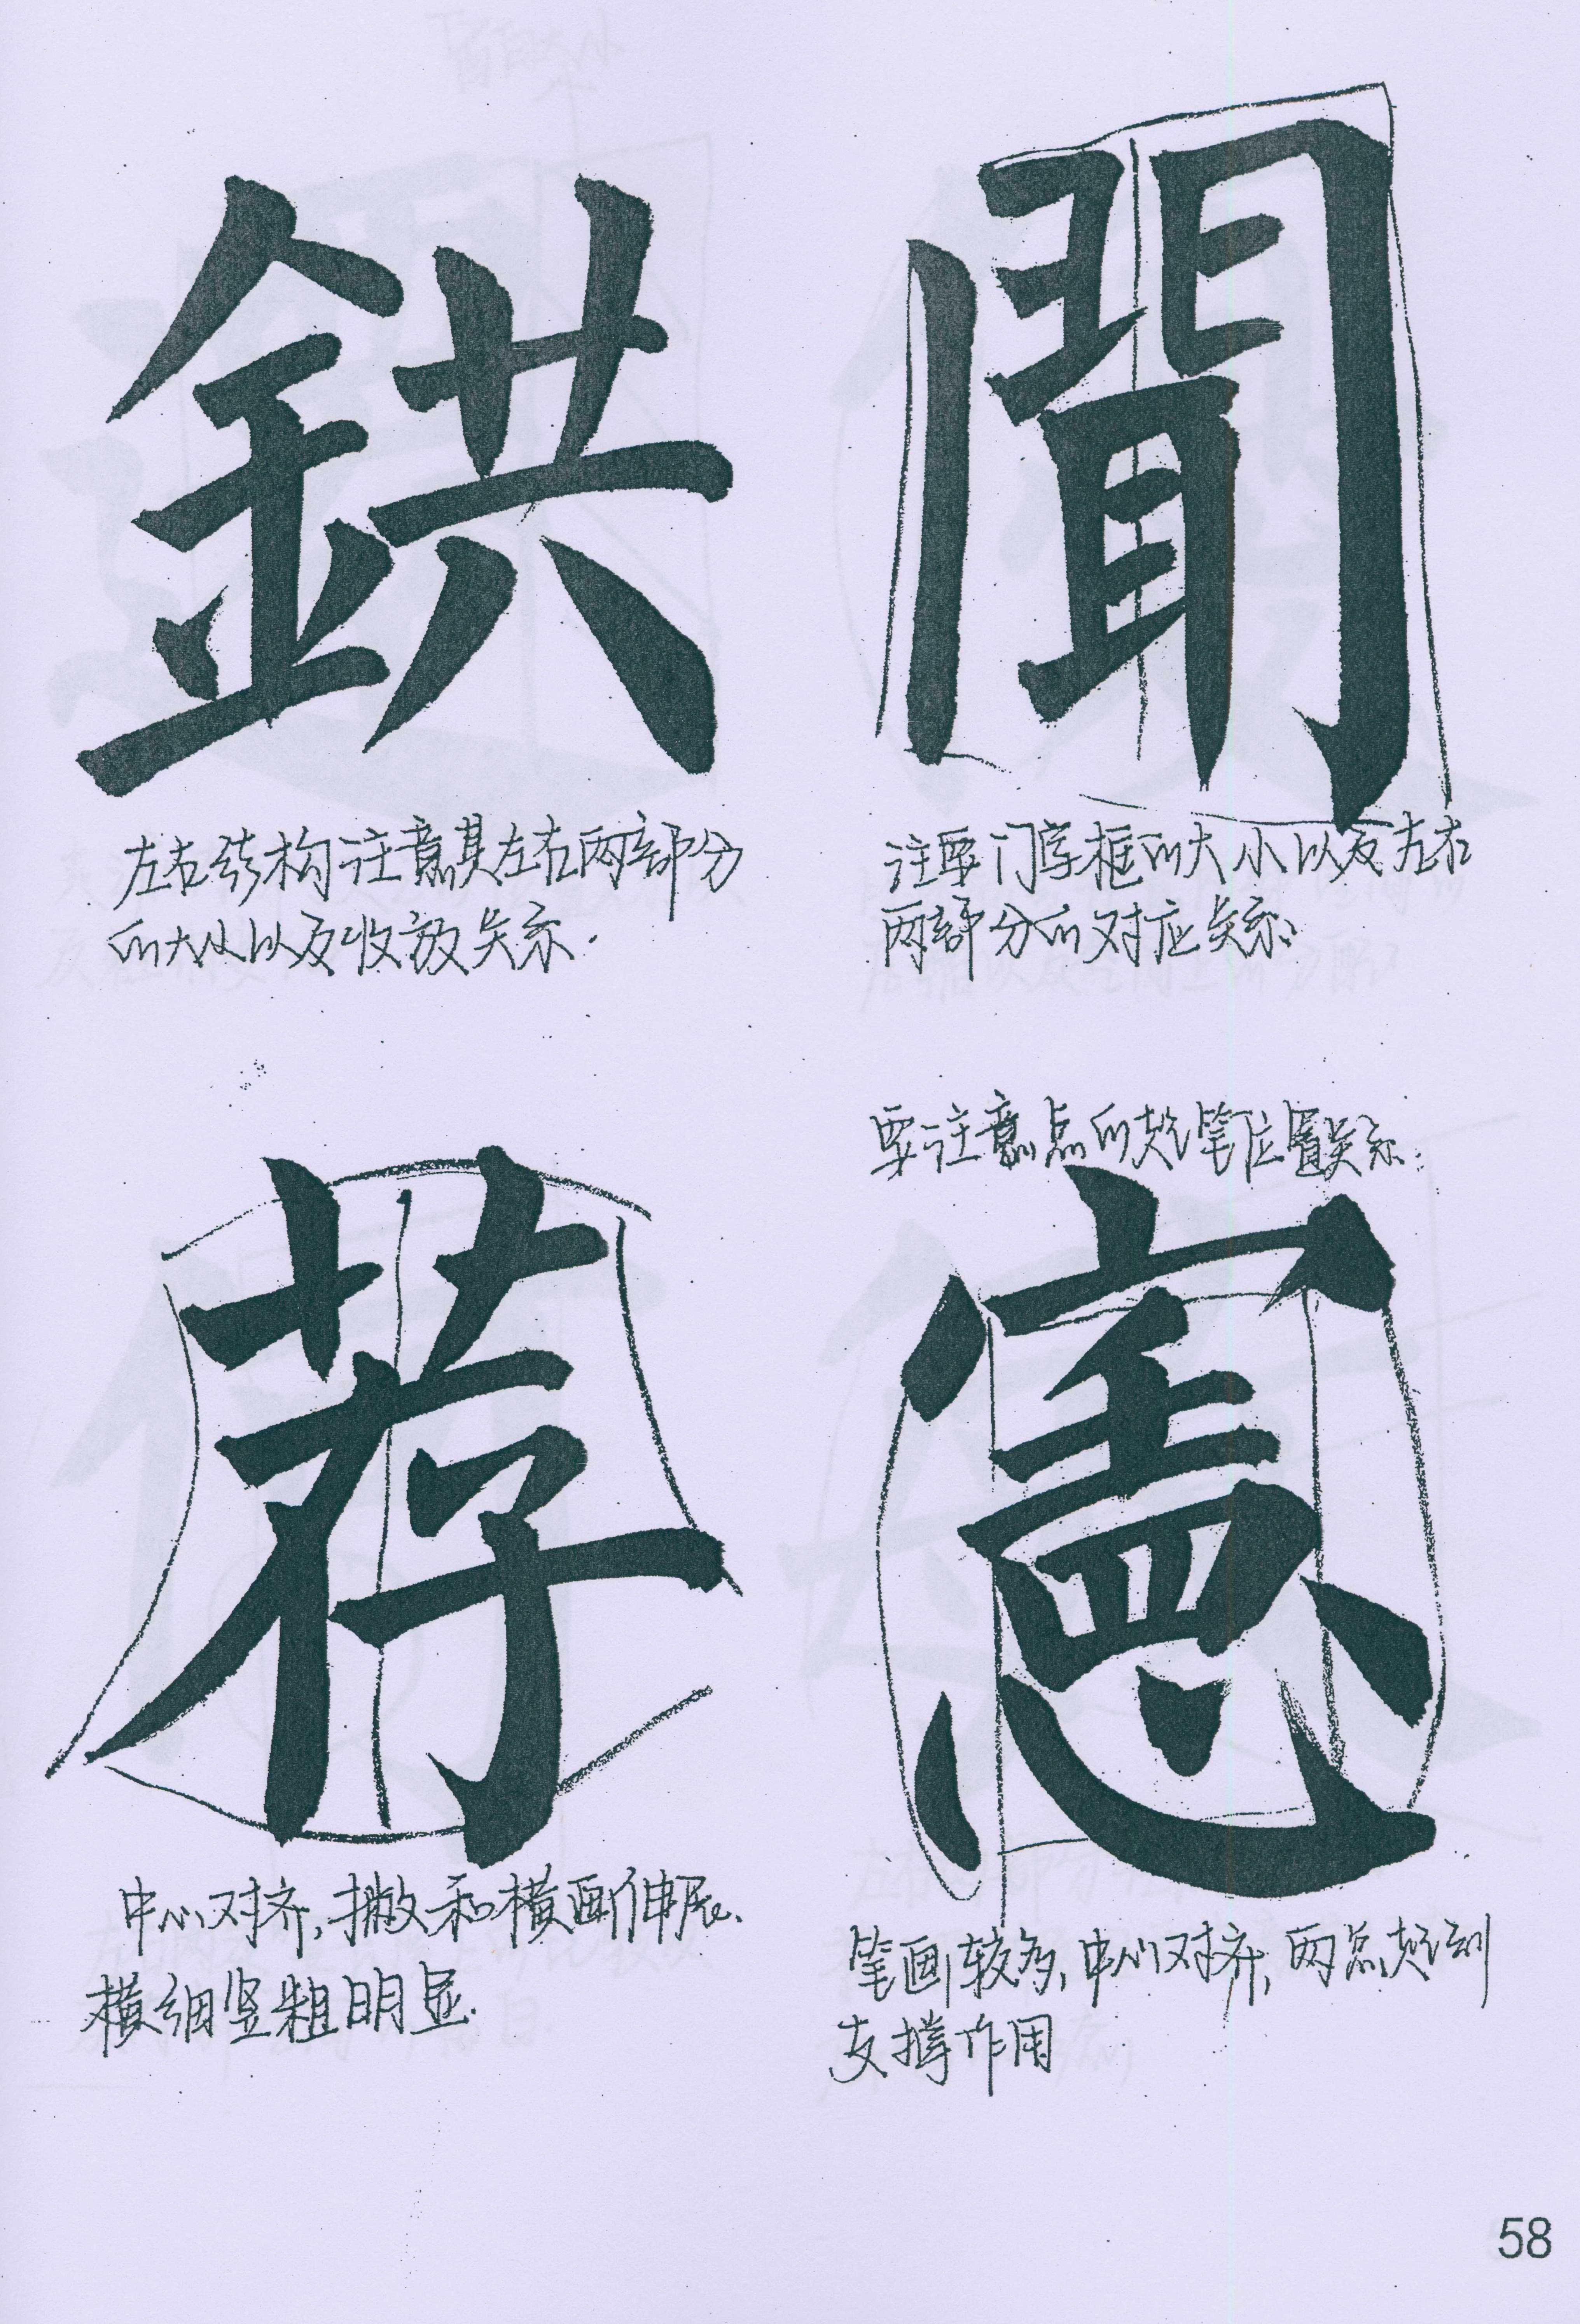 鉷
聞
左右结构注意其左右两部分
的大小以及收放关系.
注要门字框的大小以及左右
两部分的对应关系.
荐
要注意点的起笔位置关系.
憲
中心对齐,撇和横画伸展.
横细竖粗明显.
笔画较多,中心对齐,两点起到
支撑作用
58